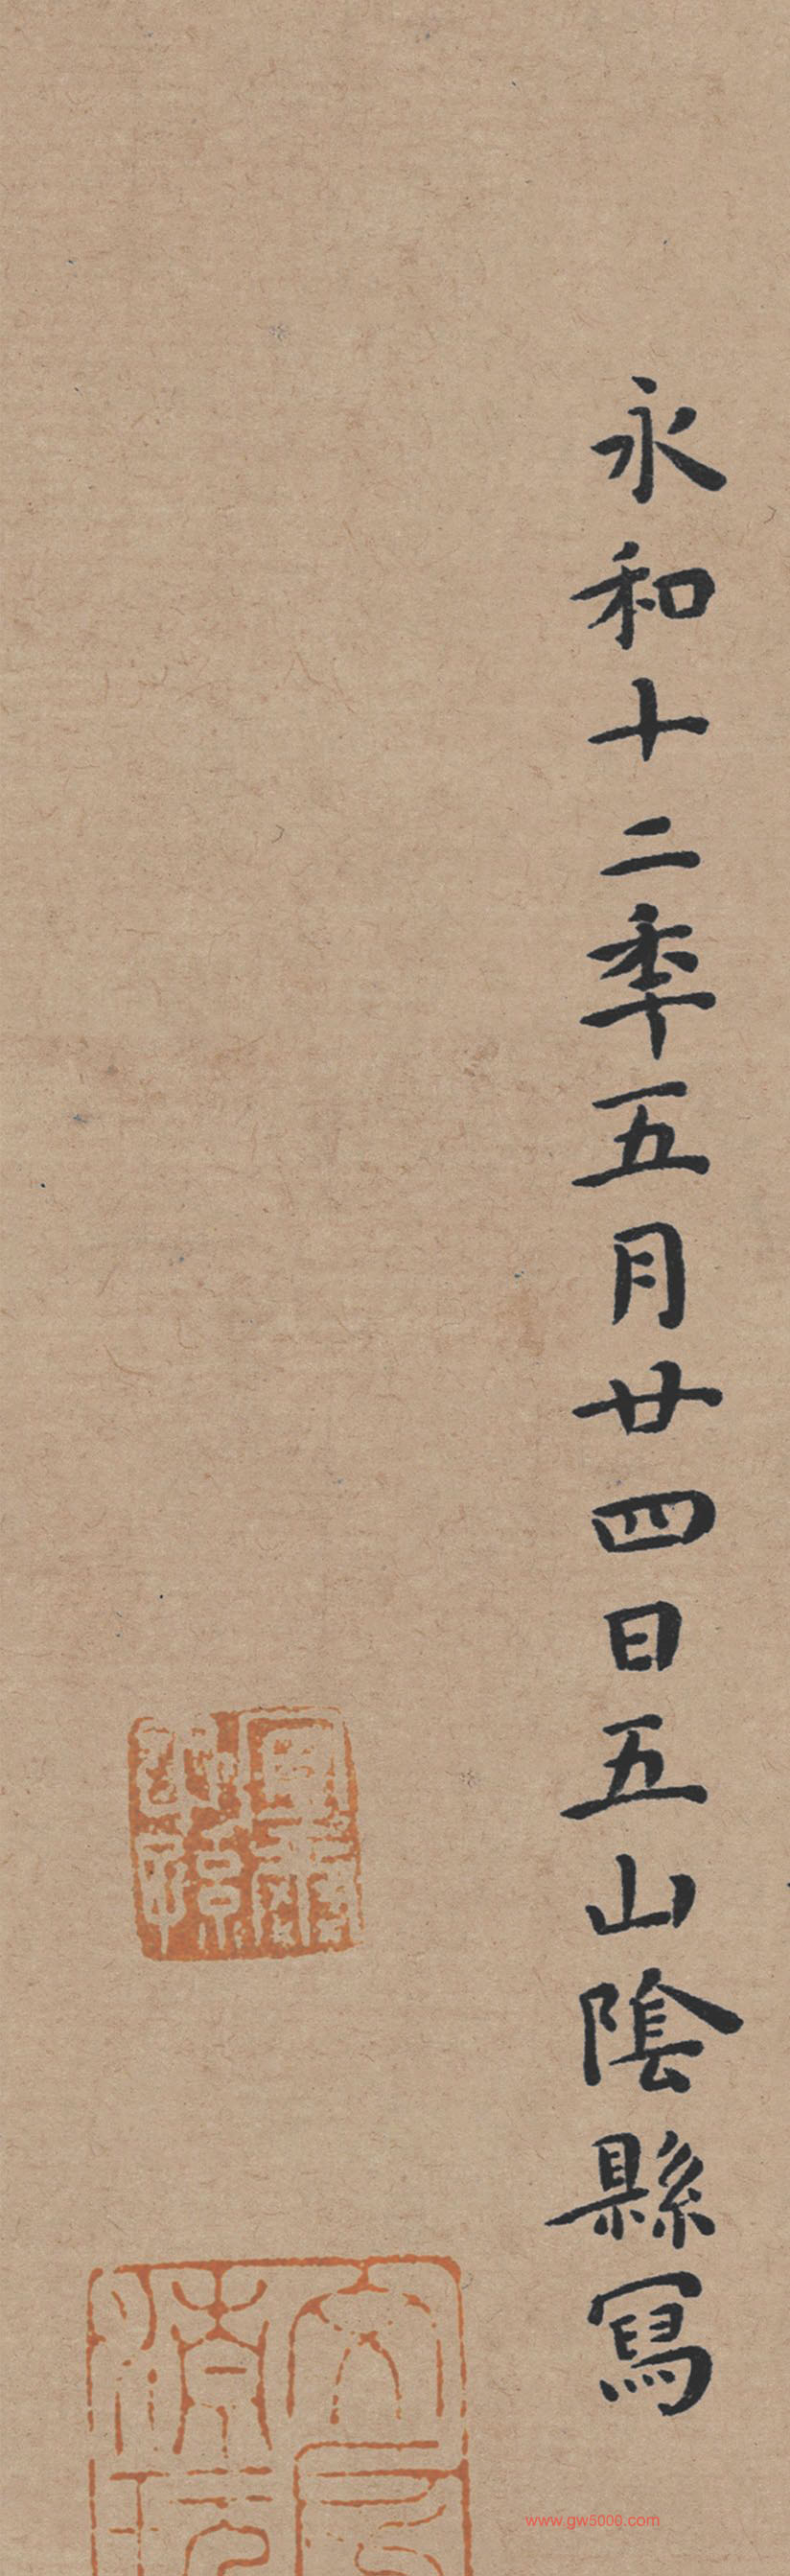 永和十二秊五月廿四日五山陰縣寫
www.gw5000.com